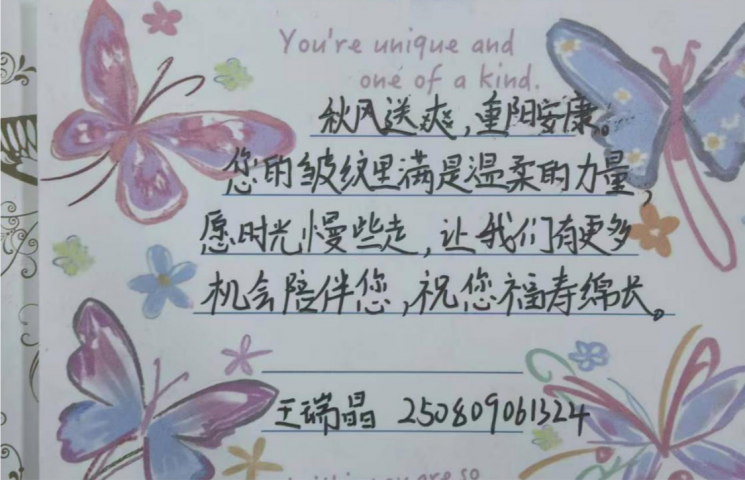 You're unique and
one of a kind.
秋风送爽，重阳安康。
您的皱纹里满是温柔的力量，
愿时光慢些走，让我们有更多
机会陪伴您，祝您福寿绵长。
王瑞晶 250809061324
you are so